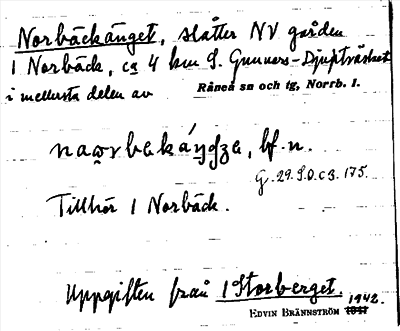 Norbäckänget, slåtter NV gården
1 Norbäck, ca 4 km S. Gunners-Djupträsket
i mellersta delen av Råneå sn och tg, Norrb. l.
nao̯rbɛkáŋdʒɛ, bf. n.
G. 29. S.O. c 3. 175.
Tillhör 1 Norbäck.
Uppgiften från 1 Storberget.
EDVIN BRÄNNSTRÖM 1941 1942.